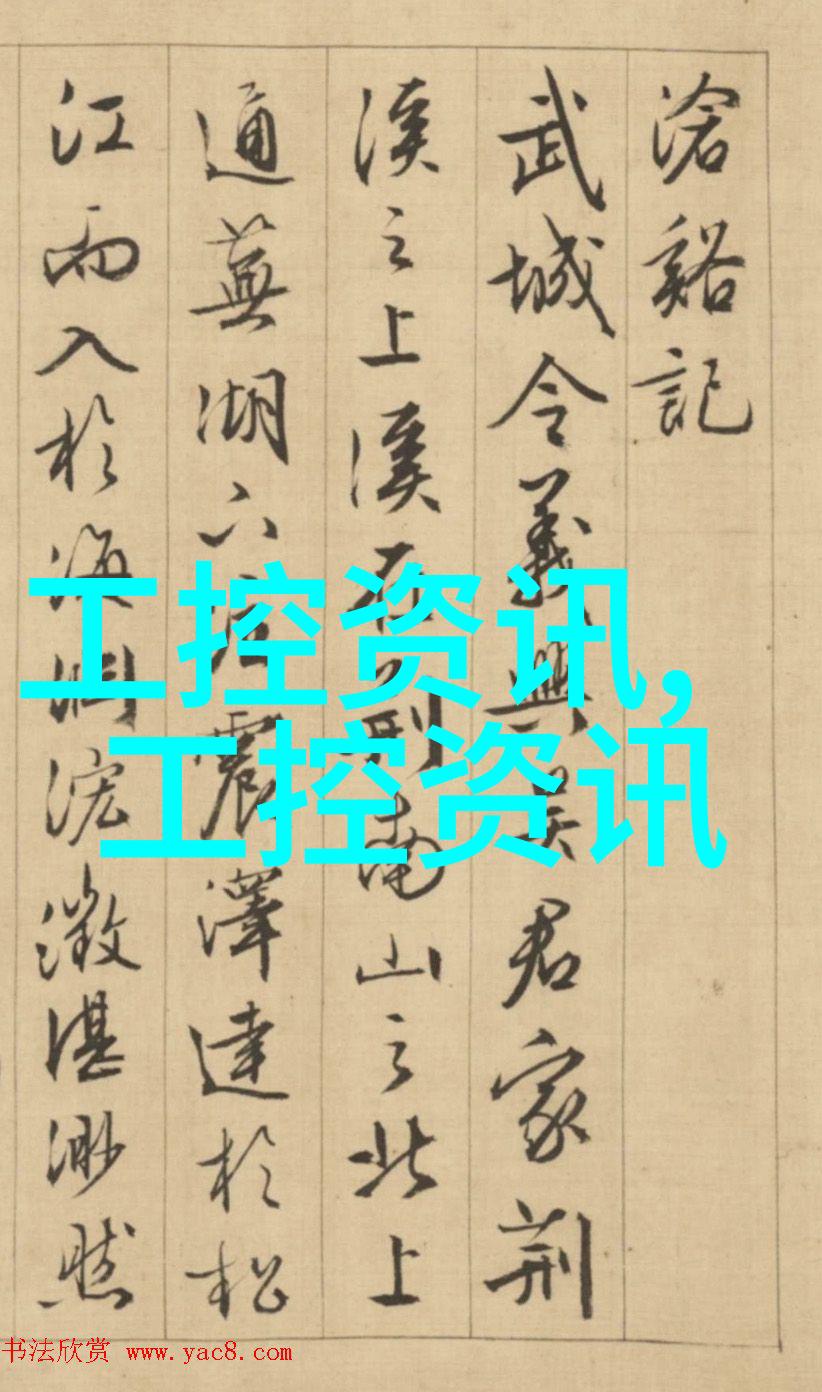 滄谿記
武城令義興吳君家荊
溪之上溪在荊南山之北上
通蕪湖下注震澤達於松
江而入於海淵浤澂湛渺然
工控资讯,
工控资讯
书法欣赏 www.yac8.com